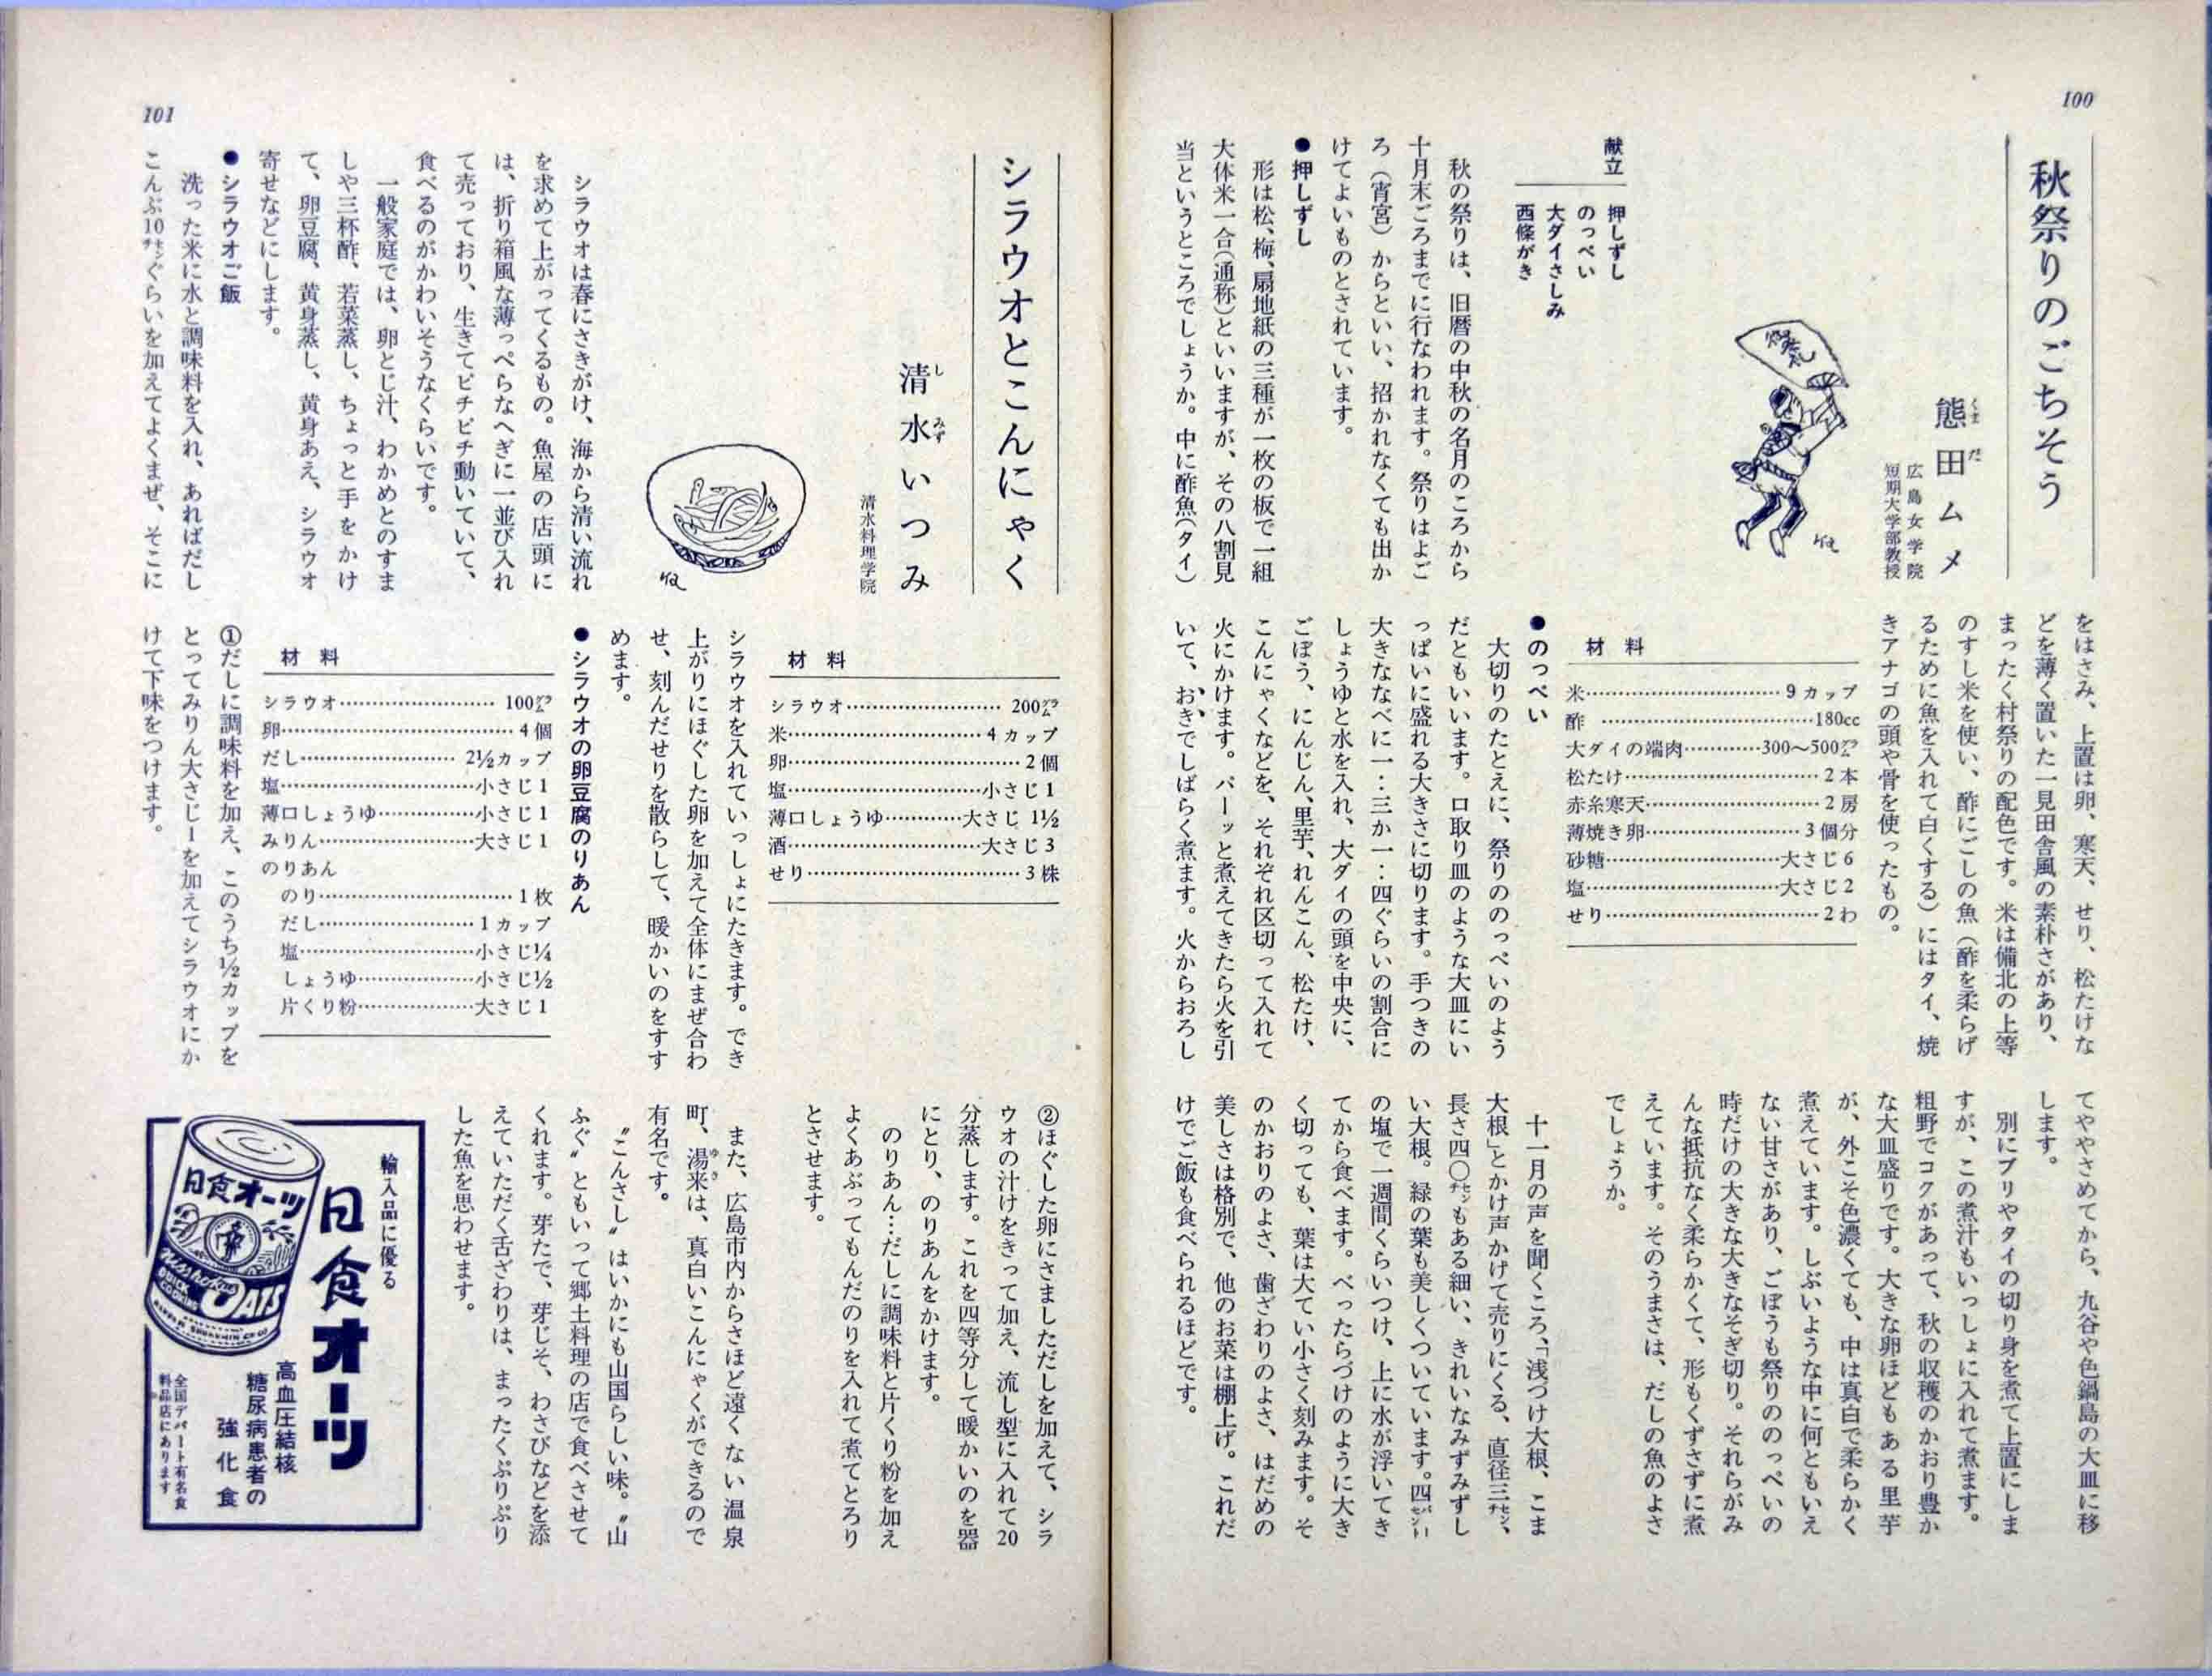 100
秋祭りのごちそう
熊田ムメ
くまだ
広島女学院
短期大学部教授
献立
押しずし
のっぺい
大ダイさしみ
西條がき
秋の祭りは、旧暦の中秋の名月のころから
十月末ごろまでに行なわれます。祭りはよご
ろ（宵宮）からといい、招かれなくても出か
けてよいものとされています。
●押しずし
形は松、梅、扇地紙の三種が一枚の板で一組
大体米一合（通称）といいますが、その八割見
当というところでしょうか。中に酢魚（タイ）
をはさみ、上置は卵、寒天、せり、松たけな
どを薄く置いた一見田舎風の素朴さがあり、
まったく村祭りの配色です。米は備北の上等
のすし米を使い、酢にごしの魚（酢を柔らげ
るために魚を入れて白くする）にはタイ、焼
きアナゴの頭や骨を使ったもの。
材料
米……9カップ
酢……180cc
大ダイの端肉……300〜500グラム
松たけ……2本
赤糸寒天……2房
薄焼き卵……3個分
砂糖……大さじ6
塩……大さじ2
せり……2わ
●のっぺい
大切りのたとえに、祭りののっぺいのよう
だともいいます。口取り皿のような大皿にい
っぱいに盛れる大きさに切ります。手つきの
大きなべに一：三か一：四ぐらいの割合に
しょうゆと水を入れ、大ダイの頭を中央に、
ごぼう、にんじん、里芋、れんこん、松たけ、
こんにゃくなどを、それぞれ区切って入れて
火にかけます。パーッと煮えてきたら火を引
いて、おきでしばらく煮ます。火からおろし
てややさめてから、九谷や色鍋島の大皿に移
します。
別にブリやタイの切り身を煮て上置にしま
すが、この煮汁もいっしょに入れて煮ます。
粗野でコクがあって、秋の収穫のかおり豊か
な大皿盛りです。大きな卵ほどもある里芋
が、外こそ色濃くても、中は真白で柔らかく
煮えています。しぶいような中に何ともいえ
ない甘さがあり、ごぼうも祭りののっぺいの
時だけの大きな大きなそぎ切り。それらがみ
んな抵抗なく柔らかくて、形もくずさずに煮
えています。そのうまさは、だしの魚のよさ
でしょうか。
十一月の声を聞くころ、「浅づけ大根、こま
大根」とかけ声かけて売りにくる、直径三センチ、
長さ四〇センチもある細い、きれいなみずみずし
い大根。緑の葉も美しくついています。四パーセント
の塩で一週間くらいつけ、上に水が浮いてき
てから食べます。べったらづけのように大き
く切っても、葉は大てい小さく刻みます。そ
のかおりのよさ、歯ざわりのよさ、はだめの
美しさは格別で、他のお菜は棚上げ。これだ
けでご飯も食べられるほどです。
101
シラウオとこんにゃく
清水いつみ
しみず
清水料理学院
シラウオは春にさきがけ、海から清い流れ
を求めて上がってくるもの。魚屋の店頭に
は、折り箱風な薄っぺらなへぎに一並び入れ
て売っており、生きてピチピチ動いていて、
食べるのがかわいそうなくらいです。
一般家庭では、卵とじ汁、わかめとのすま
しや三杯酢、若菜蒸し、ちょっと手をかけ
て、卵豆腐、黄身蒸し、黄身あえ、シラウオ
寄せなどにします。
●シラウオご飯
洗った米に水と調味料を入れ、あればだし
こんぶ10センチぐらいを加えてよくまぜ、そこに
材料
シラウオ……200グラム
米……4カップ
卵……2個
塩……小さじ1
薄口しょうゆ……大さじ1½
酒……大さじ3
せり……3株
シラウオを入れていっしょにたきます。でき
上がりにほぐした卵を加えて全体にまぜ合わ
せ、刻んだせりを散らして、暖かいのをすす
めます。
●シラウオの卵豆腐のりあん
材料
シラウオ……100グラム
卵……4個
だし……2½カップ
塩……小さじ1
薄口しょうゆ……小さじ1
みりん……大さじ1
のりあん
のり……1枚
だし……1カップ
塩……小さじ¼
しょうゆ……小さじ½
片くり粉……大さじ1
①だしに調味料を加え、このうち½カップを
とってみりん大さじ1を加えてシラウオにか
けて下味をつけます。
②ほぐした卵にさましただしを加えて、シラ
ウオの汁けをきって加え、流し型に入れて20
分蒸します。これを四等分して暖かいのを器
にとり、のりあんをかけます。
のりあん…だしに調味料と片くり粉を加え
よくあぶってもんだのりを入れて煮てとろり
とさせます。
また、広島市内からさほど遠くない温泉
町、湯来は、真白いこんにゃくができるので
ゆき
有名です。
〝こんさし〟はいかにも山国らしい味。〝山
ふぐ〟ともいって郷土料理の店で食べさせて
くれます。芽たで、芽じそ、わさびなどを添
えていただく舌ざわりは、まったくぷりぷり
した魚を思わせます。
輸入品に優る
日食オーツ
日食オーツ
QUICK COOKING
OATS
高血圧結核
糖尿病患者の
強化食
全国デパート有名食
料品店にあります